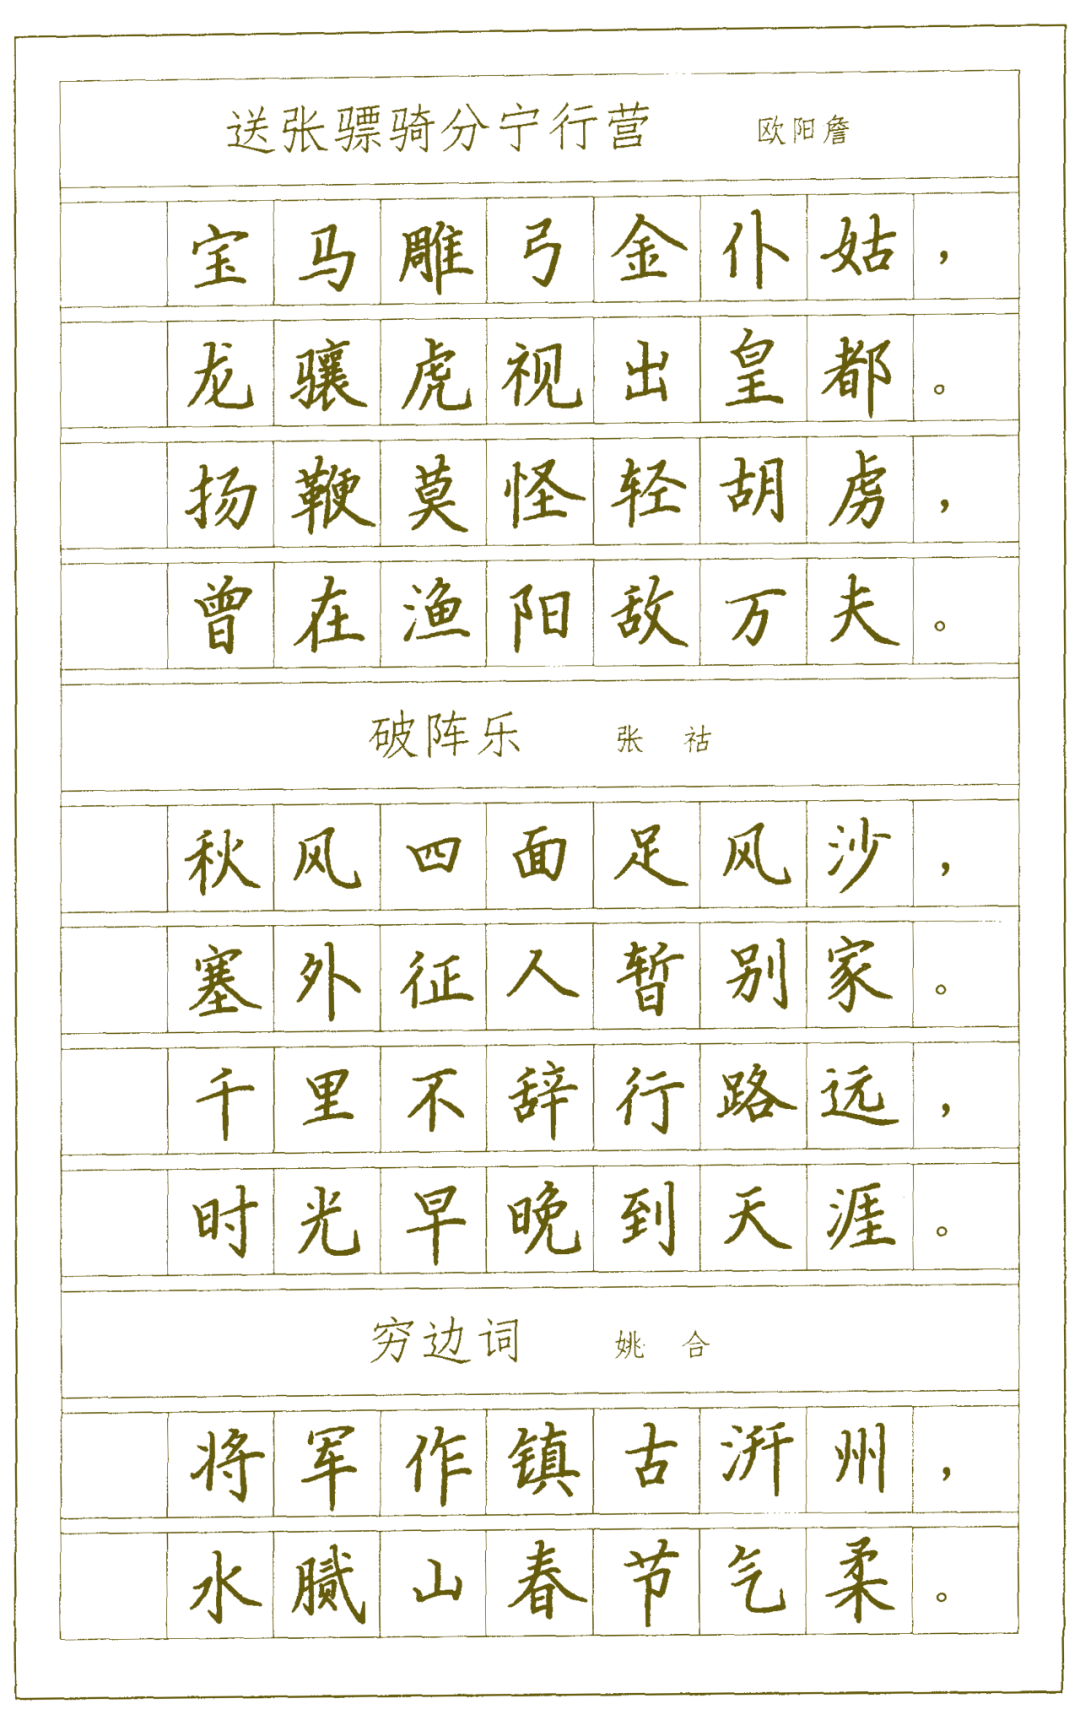 送张骠骑分宁行营 欧阳詹
宝马雕弓金仆姑，
龙骧虎视出皇都。
扬鞭莫怪轻胡虏，
曾在渔阳敌万夫。
破阵乐 张祜
秋风四面足风沙，
塞外征人暂别家。
千里不辞行路远，
时光早晚到天涯。
穷边词 姚合
将军作镇古汧州，
水腻山春节气柔。